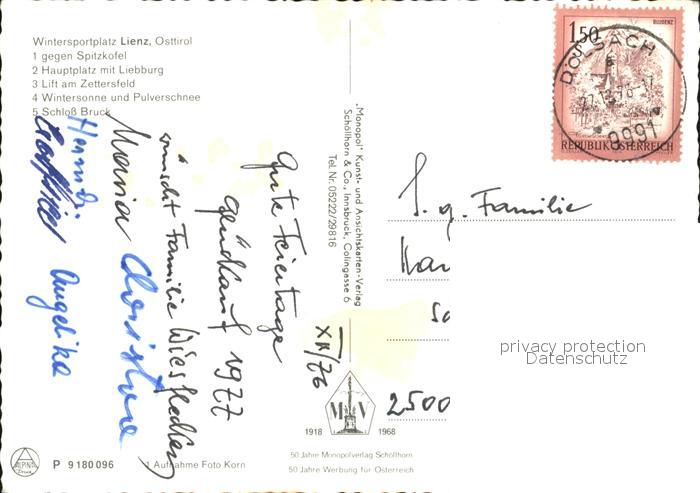 Wintersportplatz Lienz, Osttirol
1 gegen Spitzkofel
2 Hauptplatz mit Liebburg
3 Lift am Zettersfeld
4 Wintersonne und Pulverschnee
5 Schloß Bruck
Gute Feiertage
1977
wünscht Familie
Maria Christine
Hermi
Angelika
XII/76
„Monopol" Kunst- und Ansichtskarten-Verlag
Schöllhorn & Co., Innsbruck, Colingasse 6
Tel. Nr. 05222/29816
BLUDENZ
1.50 S
DÖLSACH
27.12.76-17
9991
REPUBLIK ÖSTERREICH
S. g. Familie
2500
privacy protection
Datenschutz
1918 1968
50 Jahre Monopolverlag Schöllhorn
50 Jahre Werbung für Österreich
ALPINA
Druck
P 9180096
1 Aufnahme Foto Korn